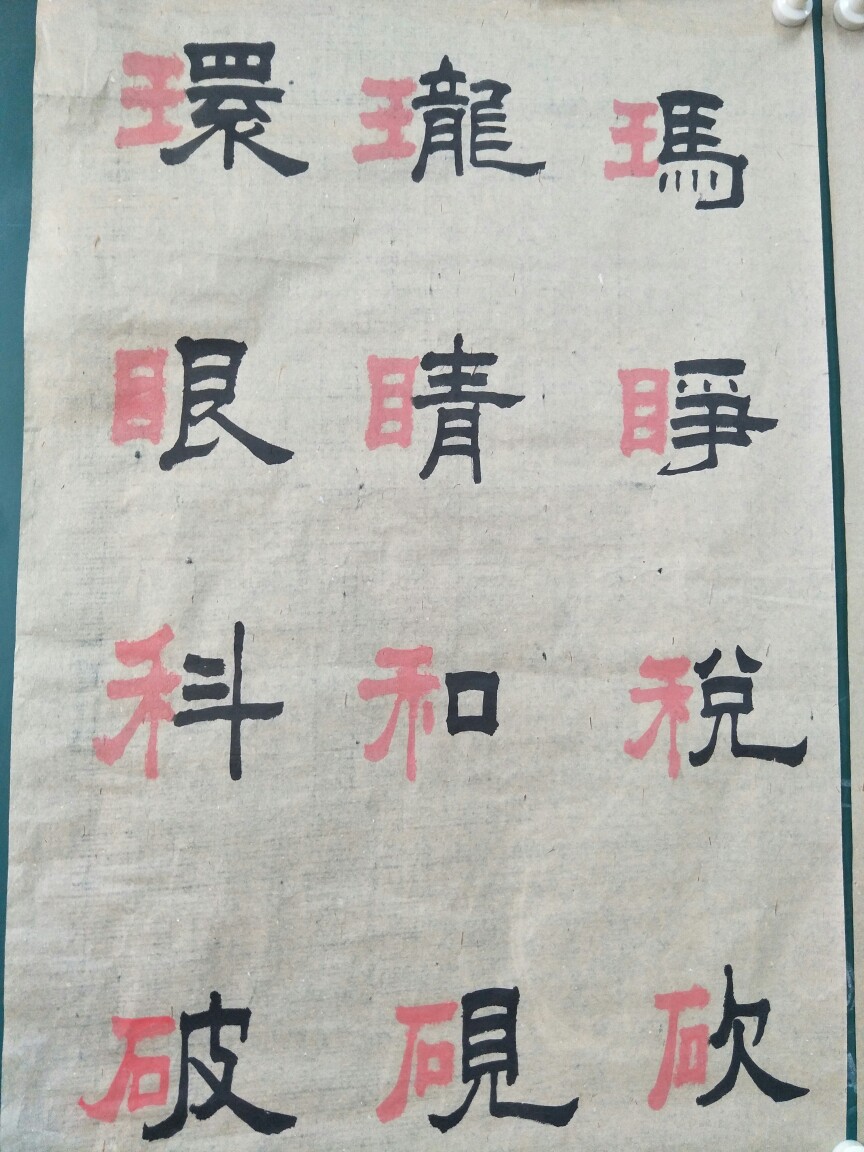 環瓏瑪
眼睛睜
科和稅
破硯砍